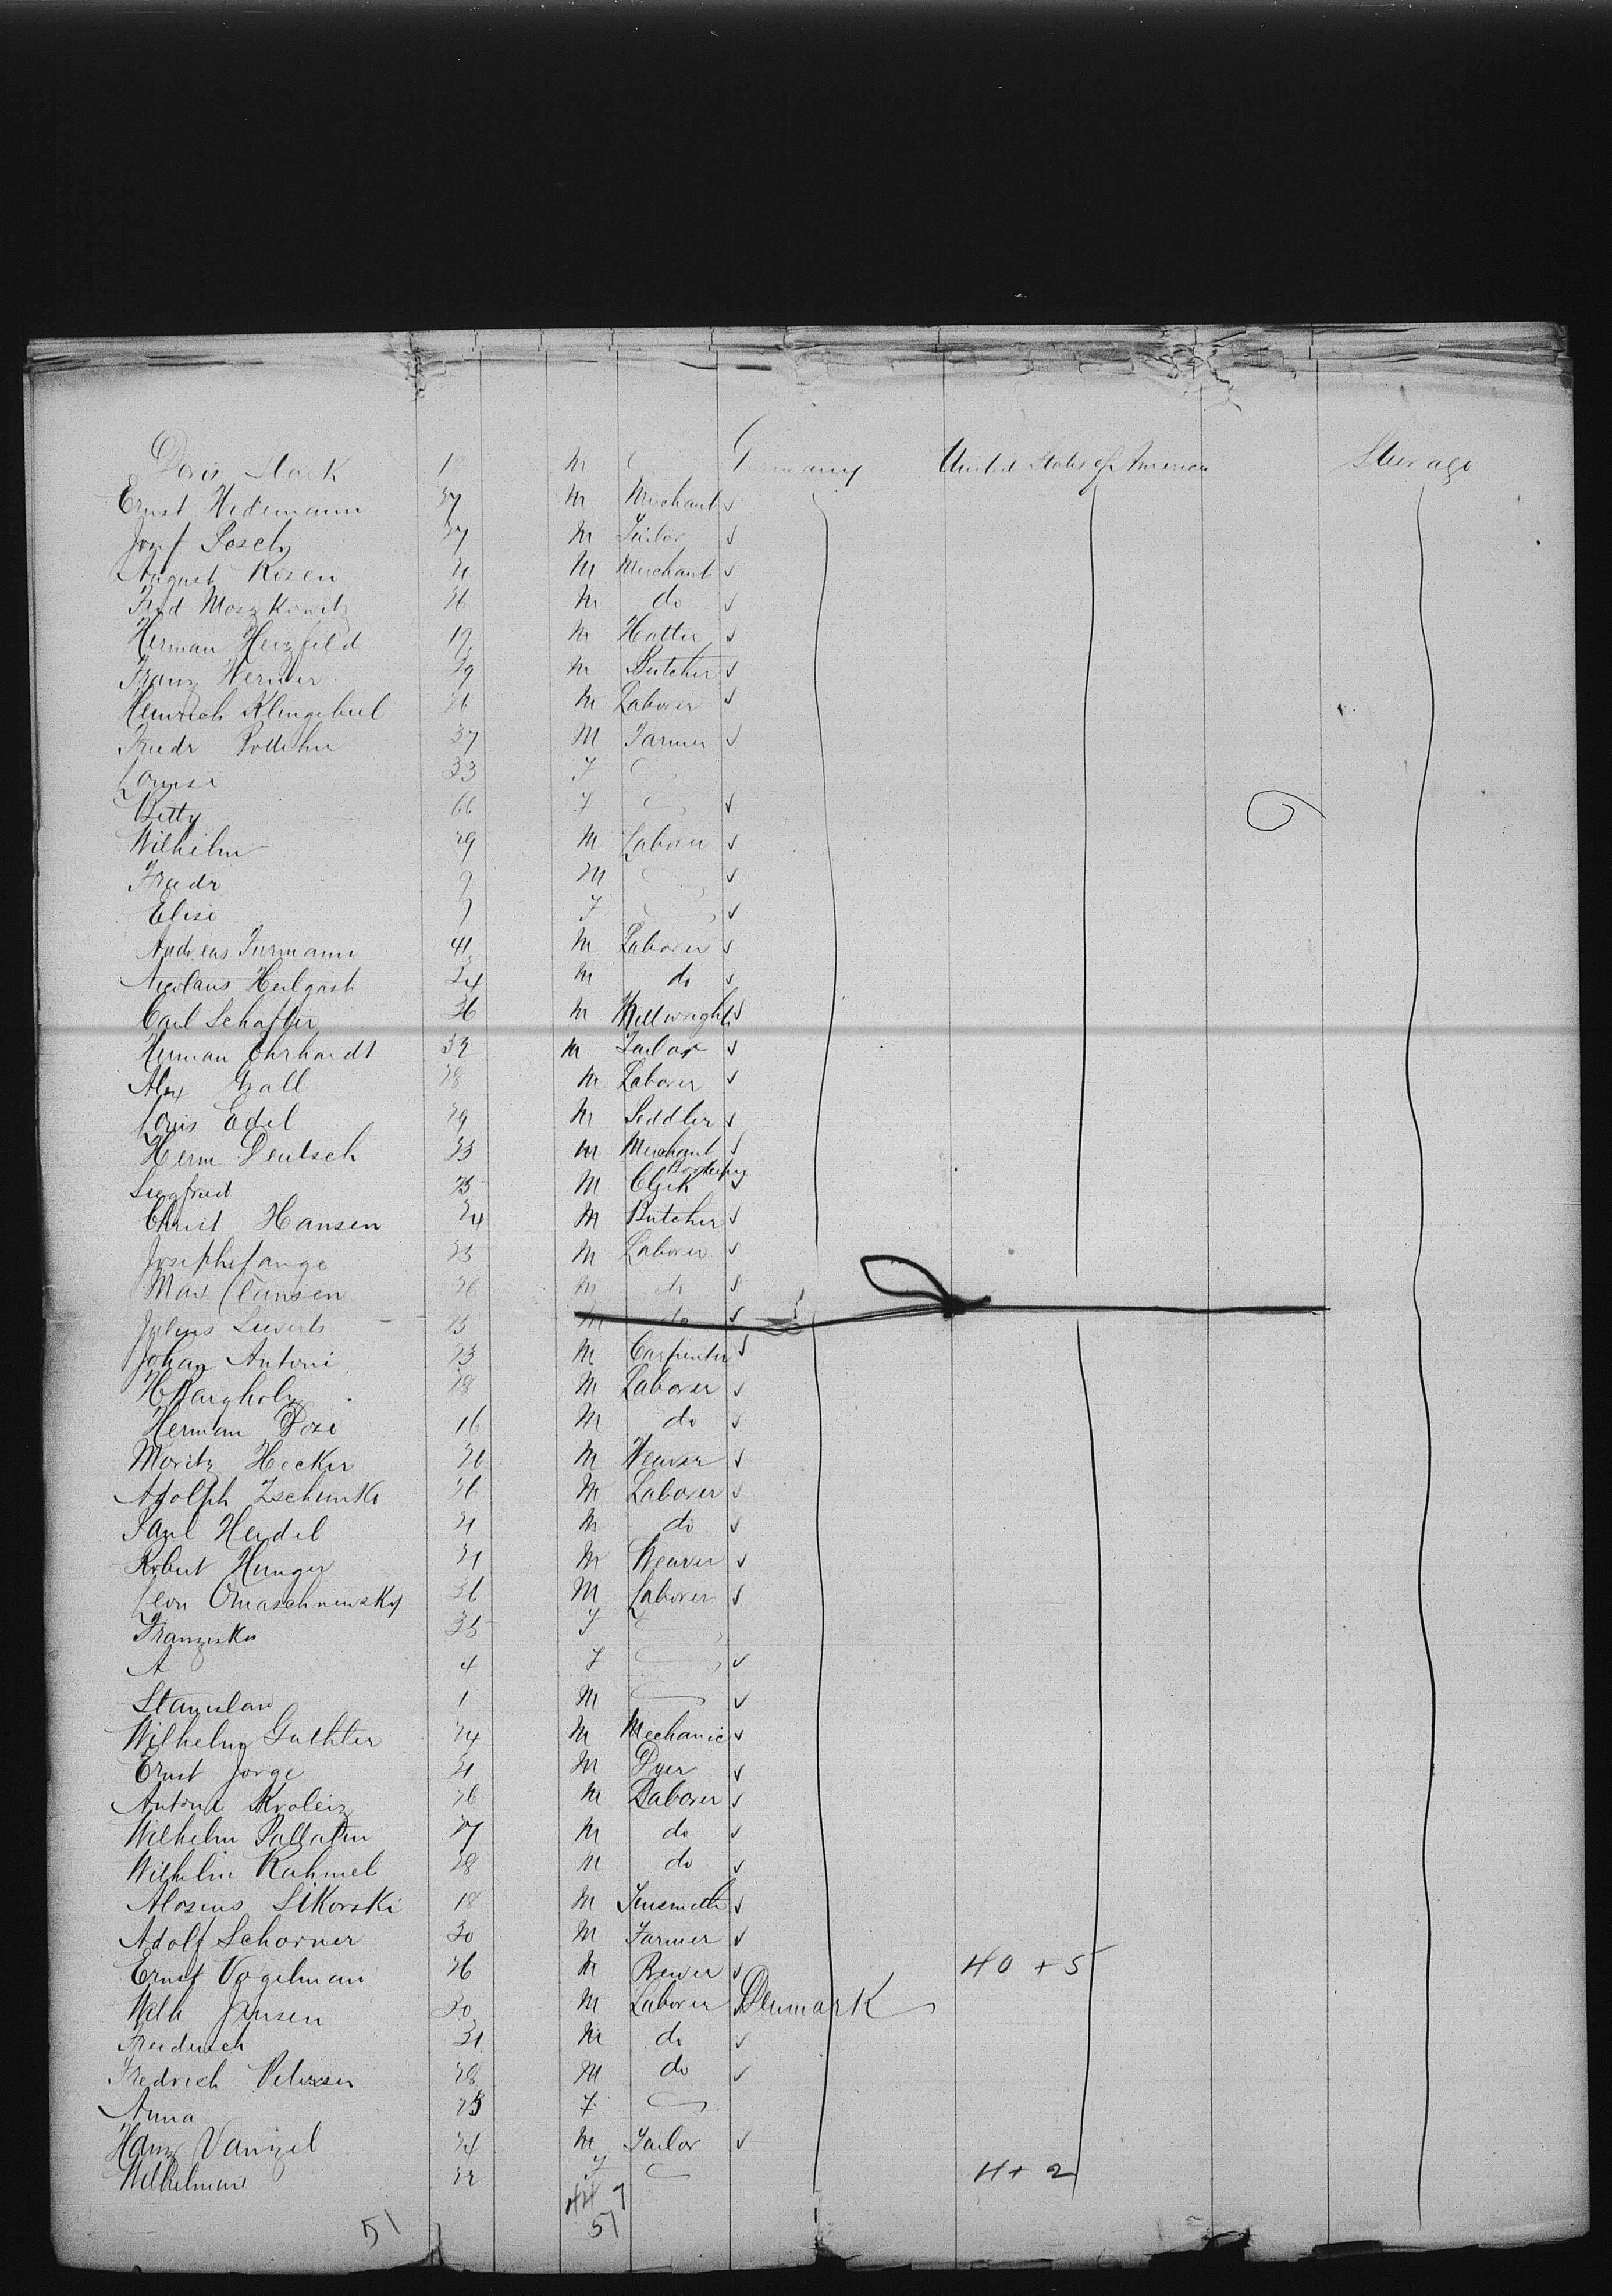 Doris Stark M Germany United States of America Steerage
Ernst Hedemann 27 M Merchant
Josef Posch 27 M Tailor
August Rosen 21 M Merchant
Moszkowitz 26 M do
Herman Herzfeld 19 M Hatter
Franz Werner 29 M Butcher
Heinrich Klingebiel 26 M Laborer
Friedr 37 M Farmer
Louise 33 F
Betty 66 F
Wilhelm 29 M Laborer
Friedr M
Elise F
Andreas Furmann 41 M Laborer
Nicolaus Heilgast 24 M do
Carl Schaffer 26 M Millwright
Herman Ehrhardt 32 M Tailor
Alex Gall 28 M Laborer
Louis Edel 29 M Seddler
Herm Deutsch 23 M Merchant
Siegfried 23 M Clerk
Christ Hansen 24 M Butcher
Joseph Lange 23 M Laborer
Max Clausen 26 M do
Julius Sieverts 25 M do
Johan Antoni 23 M Carpenter
H Bargholz 28 M Laborer
Herman Dose 16 M do
Moritz Hecker 26 M Weaver
Adolph Zschunke 26 M Laborer
Paul Heidel 21 M do
Robert Hunger 21 M Weaver
Leon Omaschniewsky 26 M Laborer
Franziska 25 F
A 4 F
Stanislaw 1 M
Wilhelm Guthter 24 M Mechanic
Ernst Jorge 21 M Dyer
Antone Kroleiz 26 M Laborer
Wilhelm Pallatin 27 M do
Wilhelm Rahmel 28 M do
Alosius Sikorski 18 M Tinsmith
Adolf Schorner 30 M Farmer
Ernst Vogelman 26 M Brewer 40 + 5
Wilh Jensen 30 M Laborer Denmark
Freiderich 21 M do
Fredrich Petersen 28 M do
Anna 23 F
Hanz Vanzel 24 M Tailor
Wilhelmine 22 F 4 + 2
44 7
51 51